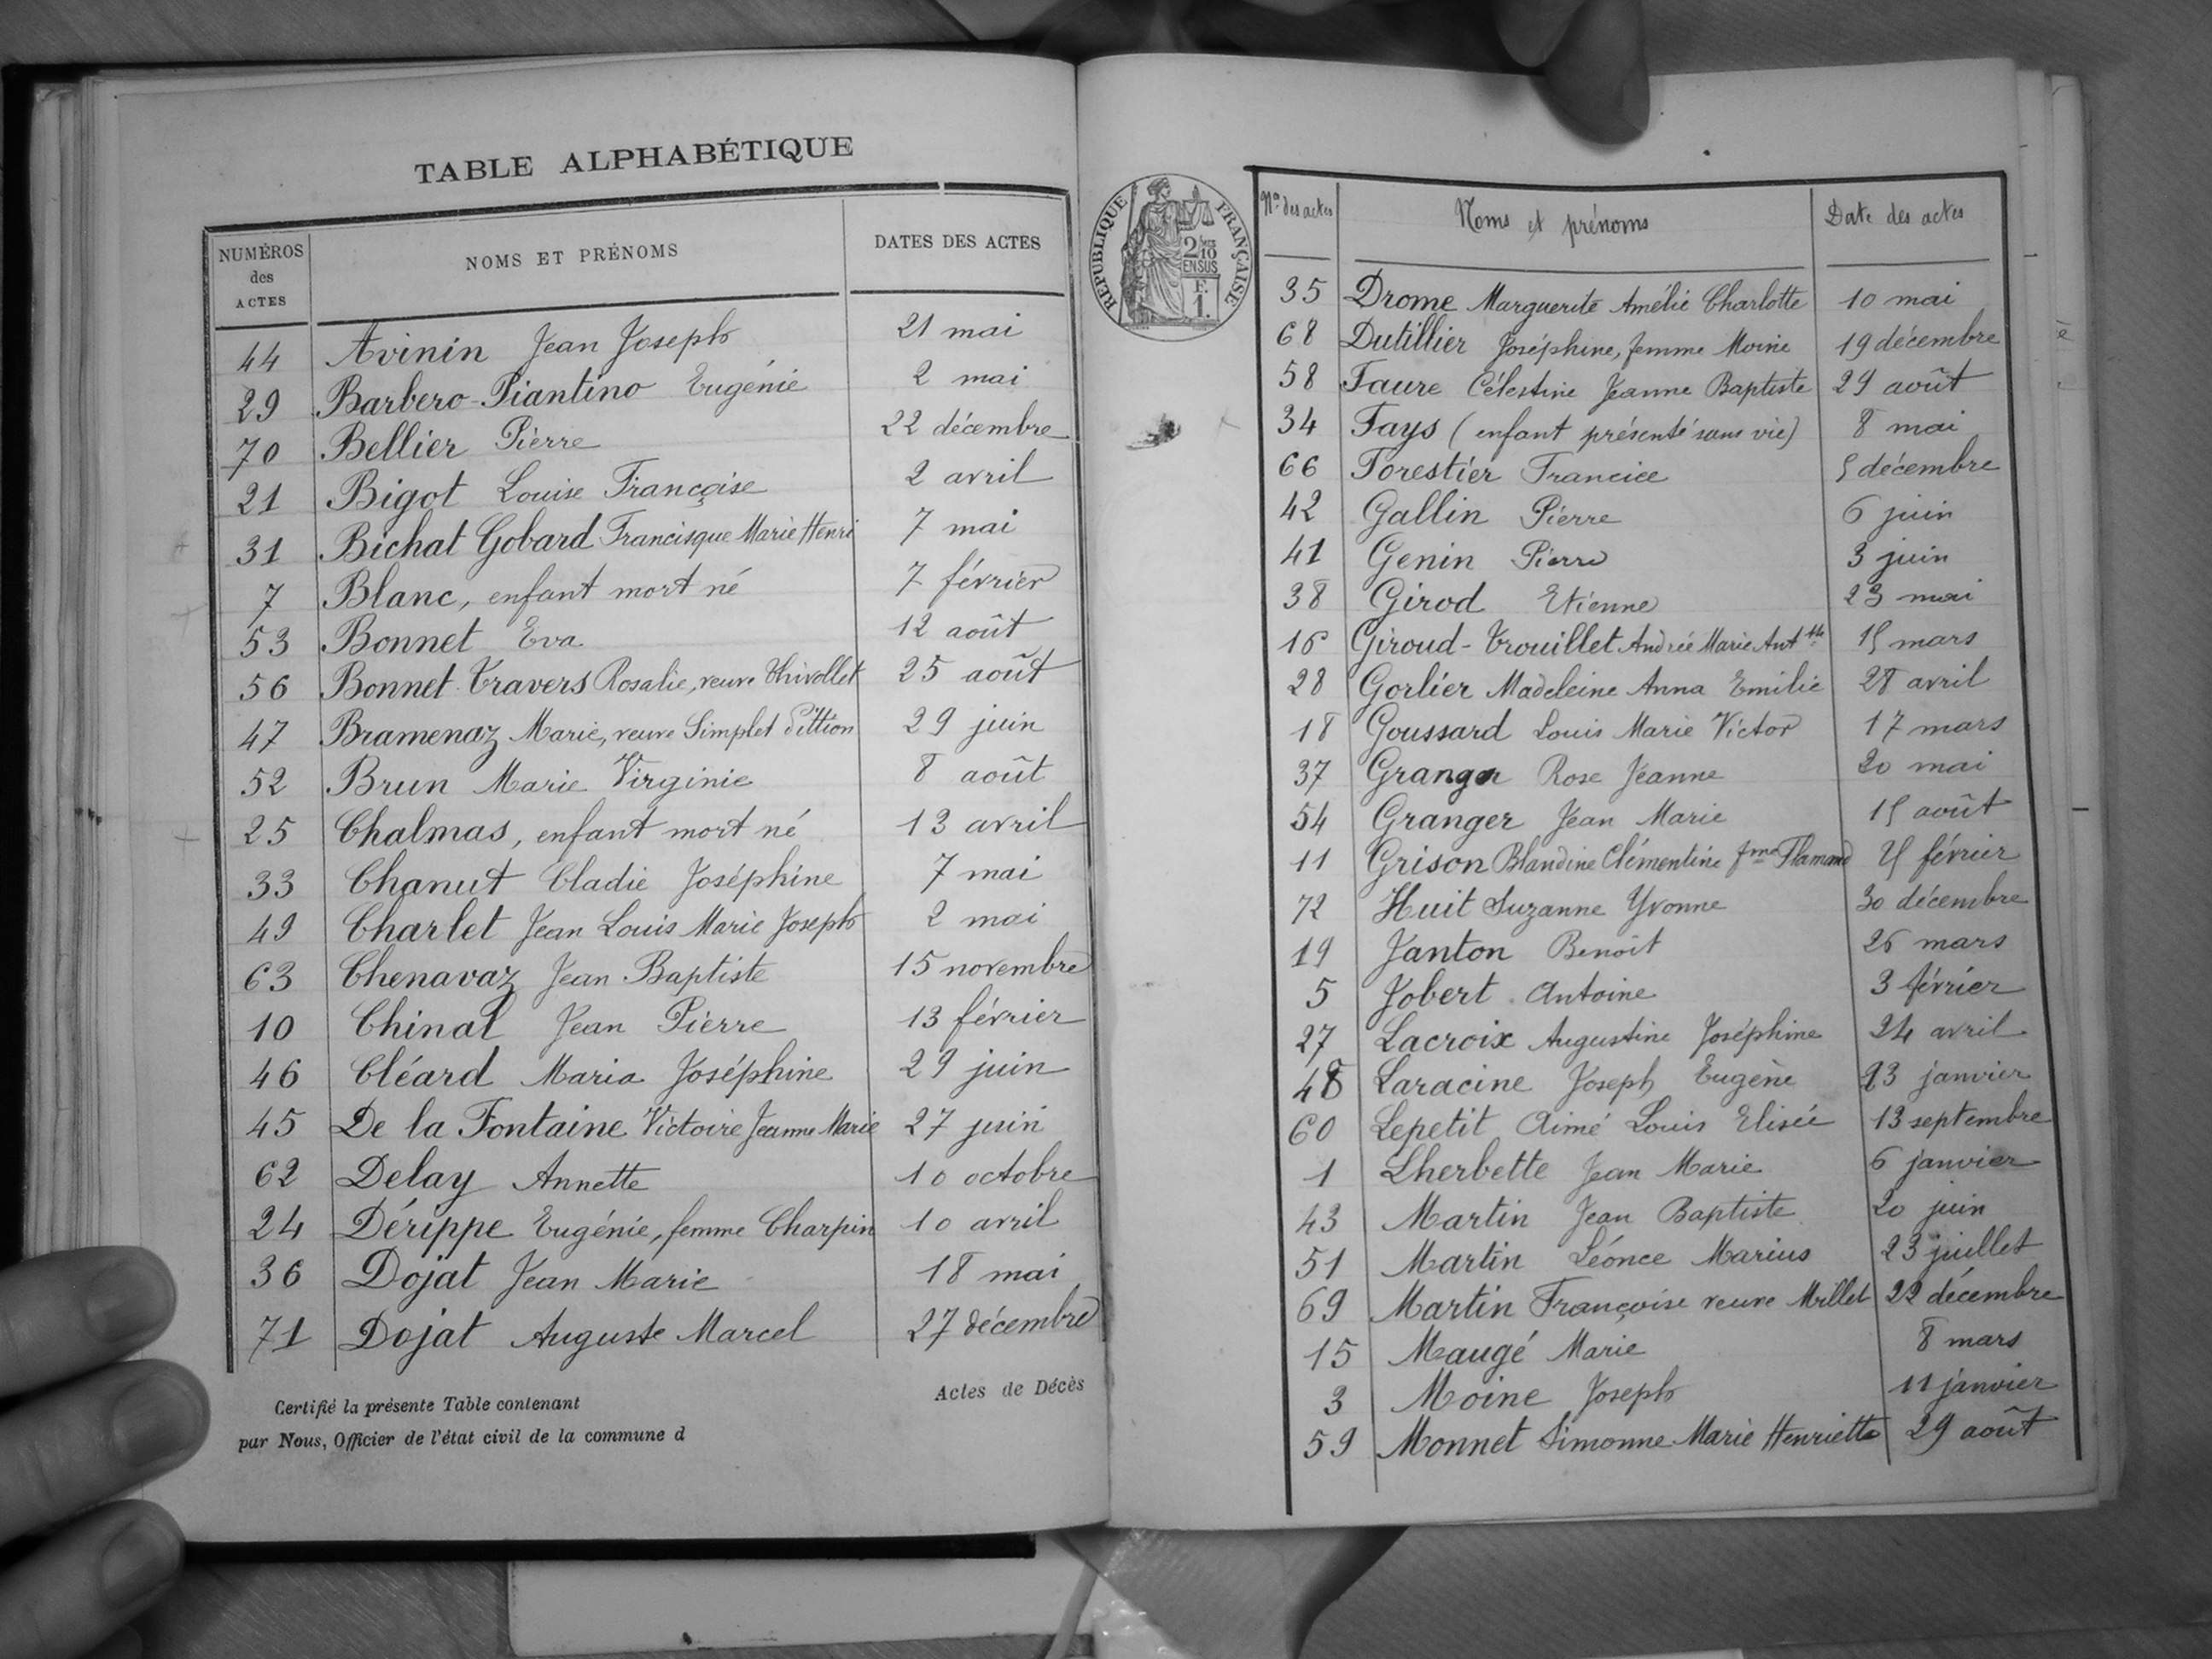 TABLE ALPHABÉTIQUE
NUMÉROS des ACTES NOMS ET PRÉNOMS DATES DES ACTES
44 Avinin Jean Joseph 21 mai
29 Barbero-Piantino Eugénie 2 mai
70 Bellier Pierre 22 décembre
21 Bigot Louise Françoise 2 avril
31 Bichat Gobard Francisque Marie Henri 7 mai
7 Blanc, enfant mort né 7 février
53 Bonnet Eva 12 août
56 Bonnet-Travers Rosalie, veuve Thivollet 25 août
47 Bramenaz Marie, veuve Simplet dittion 29 juin
52 Brun Marie Virginie 8 août
25 Chalmas, enfant mort né 13 avril
33 Chanut Cladie Joséphine 7 mai
49 Charlet Jean Louis Marie Joseph 2 mai
63 Chenavaz Jean Baptiste 15 novembre
10 Chinal Jean Pierre 13 février
46 Cléard Maria Joséphine 29 juin
45 De la Fontaine Victoire Jeanne Marie 27 juin
62 Delay Annette 10 octobre
24 Dérippe Eugénie, femme Charpin 10 avril
36 Dojat Jean Marie 18 mai
71 Dojat Auguste Marcel 27 décembre
Certifié la présente Table contenant Actes de Décès
par Nous, Officier de l'état civil de la commune d
RÉPUBLIQUE FRANÇAISE
2/10
EN SUS
F.
1.
Nos des actes Noms et prénoms Date des actes
35 Drome Marguerite Amélie Charlotte 10 mai
68 Dutillier Joséphine, femme Moine 19 décembre
58 Faure Célestine Jeanne Baptiste 29 août
34 Fays (enfant présenté sans vie) 8 mai
66 Forestier Francice 5 décembre
42 Gallin Pierre 6 juin
41 Genin Pierre 3 juin
38 Girod Etienne 23 mai
16 Giroud-Trouillet Andrée Marie Anttte 15 mars
28 Gorlier Madeleine Anna Emilie 28 avril
18 Goussard Louis Marie Victor 17 mars
37 Granger Rose Jeanne 20 mai
54 Granger Jean Marie 15 août
11 Grison Blandine Clémentine fme Flamand 25 février
72 Huit Suzanne Yvonne 30 décembre
19 Janton Benoît 26 mars
5 Jobert Antoine 3 février
27 Lacroix Augustine Joséphine 24 avril
48 Laracine Joseph Eugène 23 janvier
60 Lepetit Aimé Louis Elisée 13 septembre
1 Lherbette Jean Marie 6 janvier
43 Martin Jean Baptiste 20 juin
51 Martin Léonce Marius 23 juillet
69 Martin Françoise veuve Millet 22 décembre
15 Maugé Marie 8 mars
3 Moine Joseph 11 janvier
59 Monnet Simonne Marie Henriette 29 août